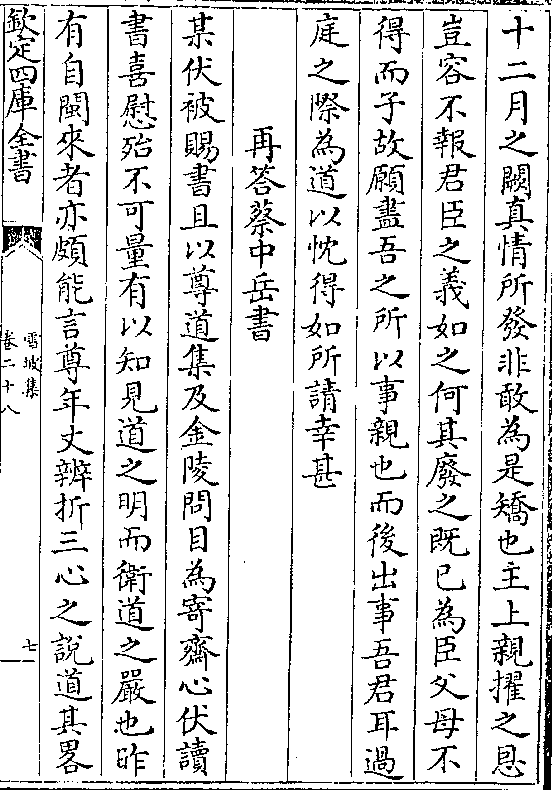 十二月之闕真情所發非敢為是矯也主上親擢之恩
豈容不報君臣之義如之何其廢之既已為臣父母不
得而子故願盡吾之所以事親也而後出事吾君耳過
庭之際為道以忱得如所請幸甚
再答蔡中岳書
某伏被賜書且以尊道集及金陵問目為寄齋心伏讀
書喜慰殆不可量有以知見道之明而衛道之嚴也昨
有自閩來者亦頗能言尊年丈辨折三心之說道其畧
欽定四庫全書
雪坡集
卷二十八
七